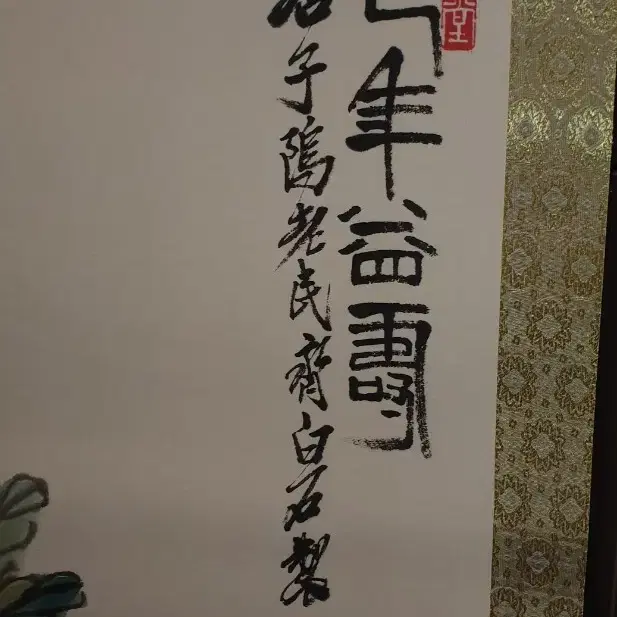 堂
年益壽
子隖老民齊白石製